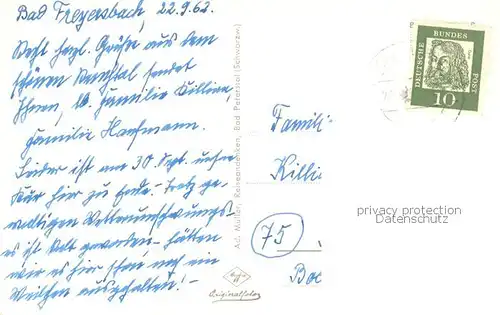 Bad Freyersbach, 22.9.62.
Recht herzl. Grüße aus dem
schönen Renchtal sendet
Ihnen, lb. Familie Killian
Familie Haufmann.
Leider ist am 30. Sept. unsere
Kur hier zu Ende. Trotz ge-
waltigen Wetterumschwungs-
es ist kalt geworden - hätten
wir es hier schon noch ein
Weilchen ausgehalten! -
Ad. Müller, Bad Peterstal (Schwarzw.)
Originalfoto
DEUTSCHE BUNDES POST
10
Famili
Killi
75
privacy protection
Datenschutz